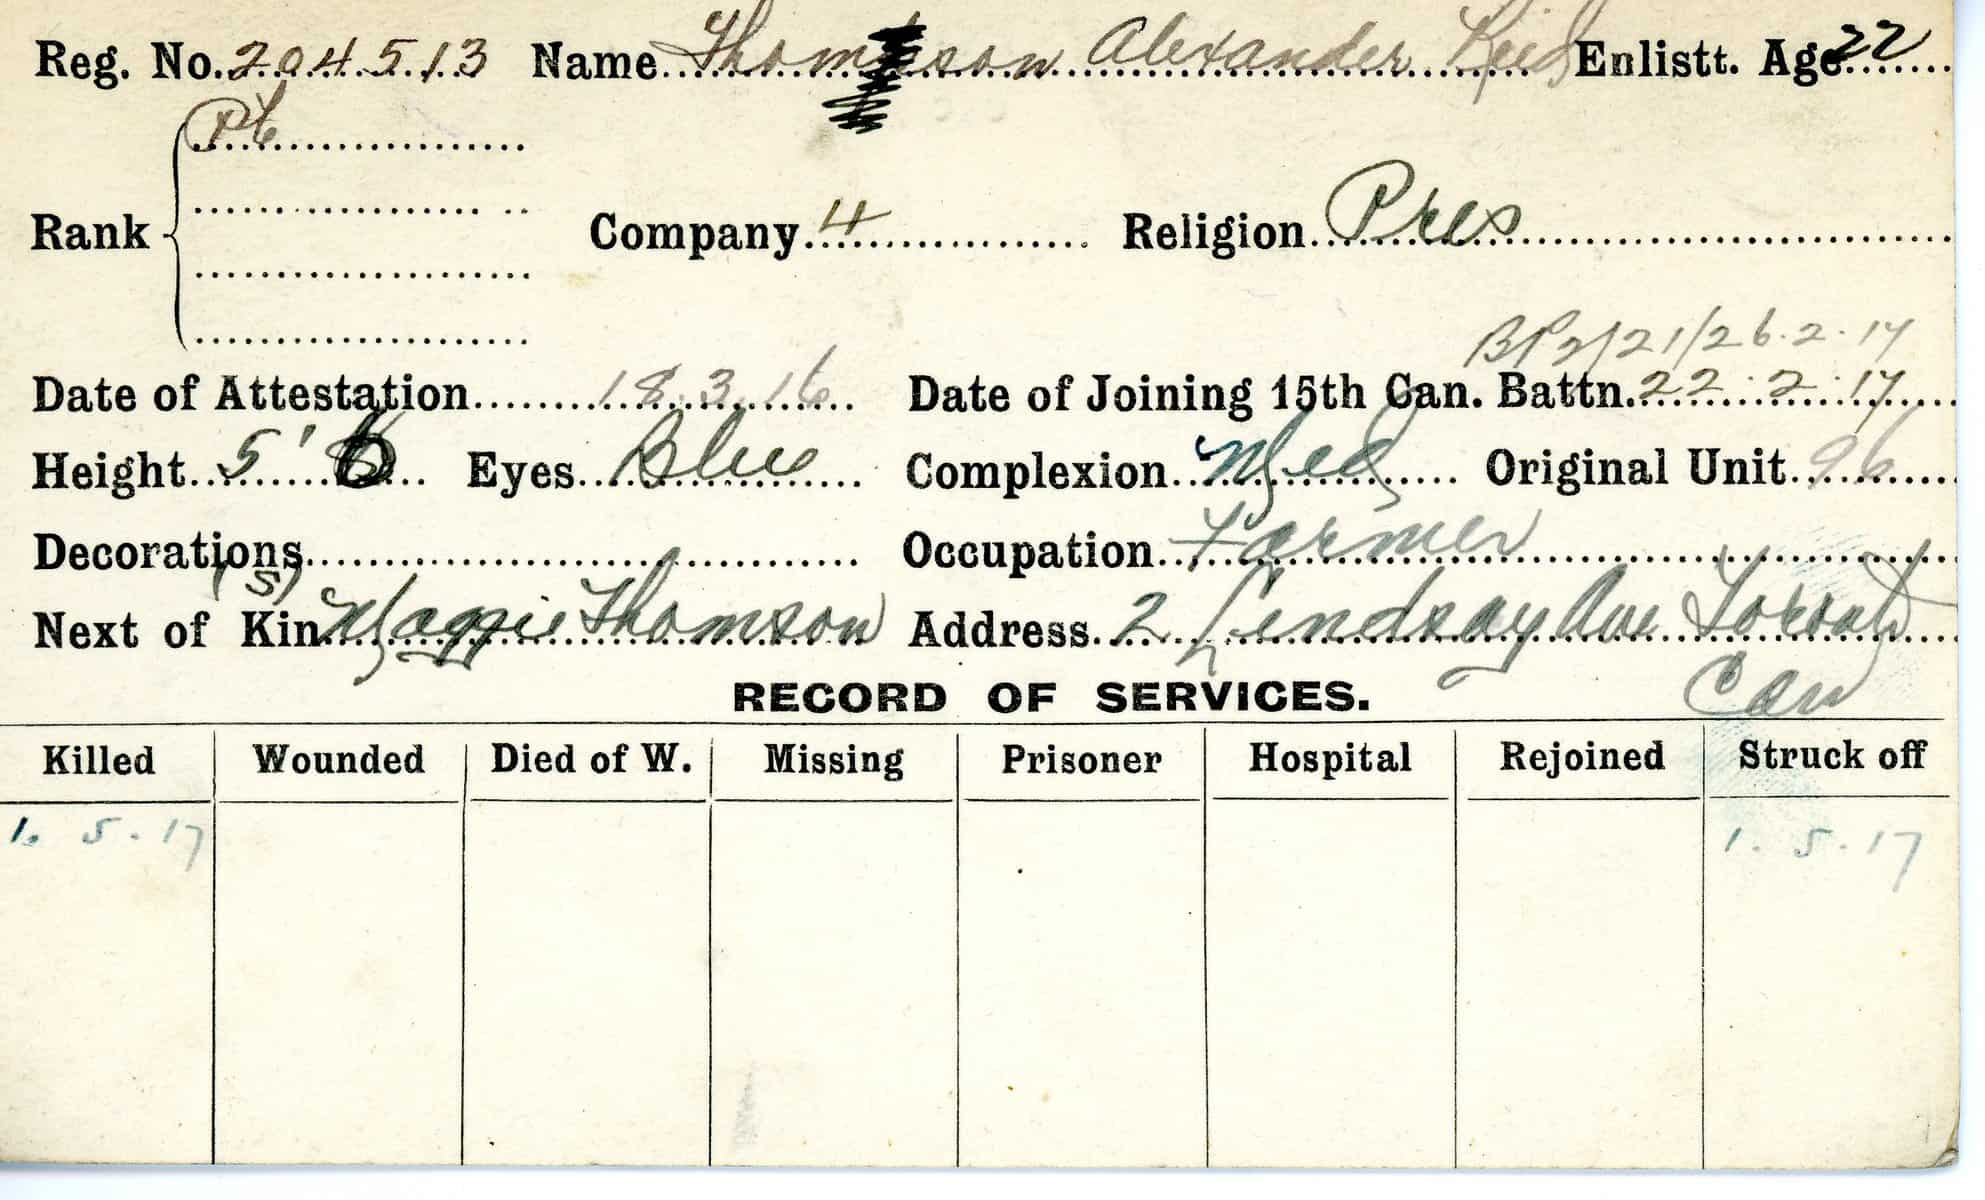 Reg. No. 204513 Name Thomson Alexander Reid Enlistt. Age 22
Pte
Rank Company 4 Religion Pres
BP2/21/26.2.17
Date of Attestation 18.3.16 Date of Joining 15th Can. Battn. 22.2.17
Height 5' 6 Eyes Blue Complexion Med Original Unit 96
Decorations Occupation Farmer
(S)
Next of Kin Maggie Thomson Address 2 Lindsay Ave Toronto
Can
RECORD OF SERVICES.
Killed Wounded Died of W. Missing Prisoner Hospital Rejoined Struck off
1. 5. 17 1. 5. 17